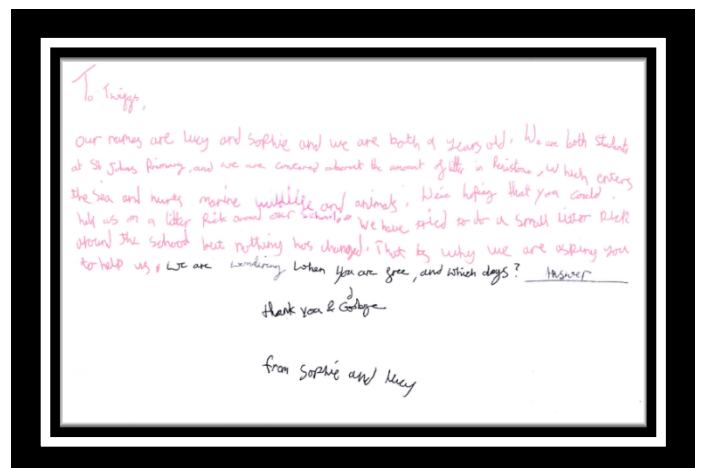 To Twiggs,
our names are Lucy and Sophie and we are both 9 years old. We are both students
at St Johns Primary, and we are concerned about the amount of litter in Penistone, which enters
the sea and hurts marine wildlife and animals. We're hoping that you could
help us on a litter pick around our school. We have tried to do a small litter pick
around the school but nothing has changed. That is why we are asking you
to help us, we are wondering when you are free, and which days? Answer
thank you & Goodbye
from Sophie and Lucy